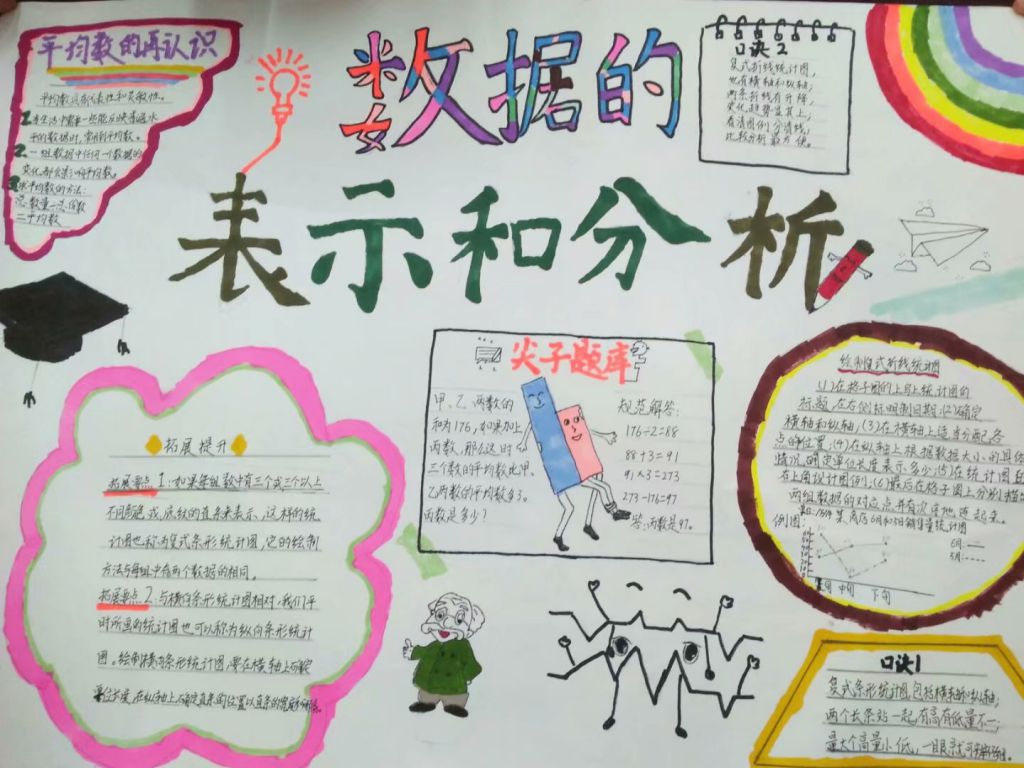 数据的
表示和分析
平均数的再认识
平均数具有代表性和灵敏性。
1.在生活中需要一些能反映普遍水
平的数据时,常用到平均数。
2.一组数据中任何一个数据的
变化,都会影响平均数。
3.求平均数的方法:
总数量÷总份数
=平均数
口诀2
复式折线统计图,
也有横轴和纵轴;
两条折线有升降,
变化趋势显其上,
看清图例分清线,
比较分析最方便。
尖子题库
甲、乙两数的
和为176,如果加上
丙数,那么这时
三个数的平均数比甲、
乙两数的平均数多3。
丙数是多少?
规范解答:
176÷2=88
88+3=91
91×3=273
273-176=97
答:丙数是97。
拓展提升
拓展要点1:如果每组数中有三个或三个以上
不同颜色或底纹的直条来表示,这样的统
计图也称为复式条形统计图,它的绘制
方法与每组中有两个数据的相同。
拓展要点2:与横向条形统计图相对,我们平
时所画的统计图也可以称为纵向条形统计
图。绘制横向条形统计图,要在横轴上确定
单位长度,在纵轴上确定直条的位置以直条的
绘制复式折线统计图
(1)在格子图的上写上统计图的
标题,在右侧标明制图日期;(2)确定
横轴和纵轴;(3)在横轴上适当分配各
点的位置;(4)在纵轴上根据数据大小的具体
情况,确定单位长度表示多少;(5)在统计图的
右上角设计图例;(6)最后在格子图上分别描出
两组数据的对应点,并依次连地连起来。
例图:
上旬 中旬 下旬
口诀1
复式条形统计图,包括横轴和纵轴;
两个长条站一起,有高有低量不一;
量大个高量小低,一眼就可